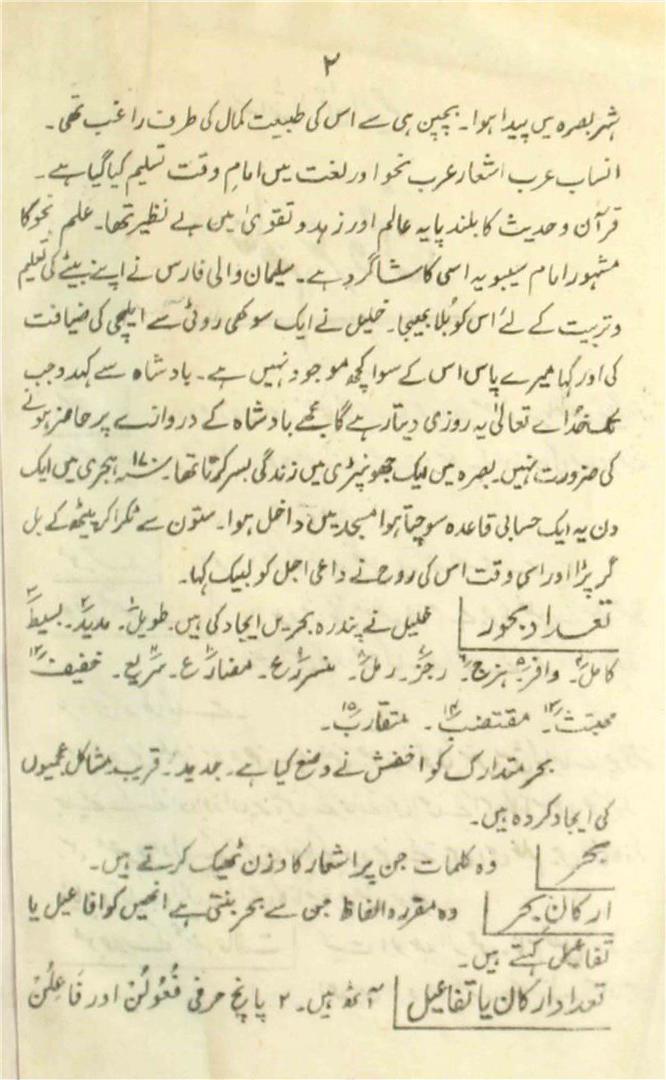 ۲
شہر بصرہ میں پیدا ہوا۔ بچپن ہی سے اس کی طبیعت کمال کی طرف راغب تھی۔
انساب عرب اشعار عرب نحو اور لغت میں امامِ وقت تسلیم کیا گیا ہے۔
قرآن و حدیث کا بلند پایہ عالم اور زہد و تقویٰ میں بے نظیر تھا۔ علم نحو کا
مشہور امام سیبویہ اسی کا شاگرد ہے۔ سیلمان والی فارس نے اپنے بیٹے کی تعلیم
و تربیت کے لئے اس کو بُلا بھیجا۔ خلیل نے ایک سوکھی روٹی سے ایلچی کی ضیافت
کی اور کہا میرے پاس اس کے سوا کچھ موجود نہیں ہے۔ بادشاہ سے کہدو جب
تک خدُاے تعالیٰ یہ روزی دیتا رہے گا مجھے بادشاہ کے دروازے پر حاضر ہونے
کی ضرورت نہیں۔ بصرہ میں ایک جھونپڑی میں زندگی بسر کرتا تھا۔ ۱۷۰ سنہ ہجری میں ایک
دن یہ ایک حسابی قاعدہ سوچتا ہوا مسجد میں داخل ہوا۔ ستون سے ٹکرا کر پیٹھ کے بل
گر پڑا اور اسی وقت اس کی روح نے داعی اجل کو لبیک کہا۔
تعداد بحور خلیل نے پندرہ بحریں ایجاد کی ہیں۔ طویل۱۔ مدید۲۔ بسیط۳
کامل۴۔ وافر۵۔ ہزج۶۔ رجز۷۔ رمل۸۔ منسرح۹۔ مضارع۱۰۔ سریع۱۱۔ خفیف۱۲
مجتث۱۳۔ مقتضب۱۴۔ متقارب۱۵۔
بحر متدارک کو اخفش نے وضع کیا ہے۔ جدید۔ قریب۔ مشاکل عجمیوں
کی ایجاد کردہ ہیں۔
بحر وہ کلمات جن پر اشعار کا وزن ٹھیک کرتے ہیں۔
ارکانِ بحر وہ مقررہ الفاظ جن سے بحر بنتی ہے انھیں کو افاعیل یا
تفاعیل کہتے ہیں۔
تعداد ارکان یا تفاعیل آٹھ ہیں۔ ۲ پانچ حرفی فَعُوْلُنْ اور فَاعِلُنْ